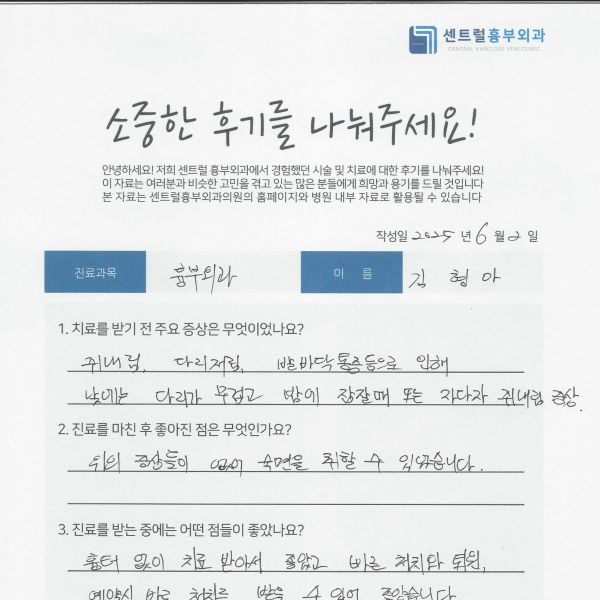 센트럴흉부외과
CENTRAL VARICOSE VEIN CLINIC
소중한 후기를 나눠주세요!
안녕하세요! 저희 센트럴 흉부외과에서 경험했던 시술 및 치료에 대한 후기를 나눠주세요!
이 자료는 여러분과 비슷한 고민을 겪고 있는 많은 분들에게 희망과 용기를 드릴 것입니다
본 자료는 센트럴흉부외과의원의 홈페이지와 병원 내부 자료로 활용될 수 있습니다
작성일 2025 년 6 월 2 일
진료과목 흉부외과 이 름 김 형 아
1. 치료를 받기 전 주요 증상은 무엇이었나요?
쥐내림, 다리저림, 발바닥통증등으로 인해
낮에는 다리가 무겁고 밤에 잠잘때 또는 자다가 쥐내림 증상.
2. 진료를 마친 후 좋아진 점은 무엇인가요?
위의 증상들이 없이 숙면을 취할 수 있었습니다.
3. 진료를 받는 중에는 어떤 점들이 좋았나요?
흉터 없이 치료 받아서 좋았고 바른 처치와 퇴원,
예약시 바로 처치를 받을 수 있어 좋았습니다